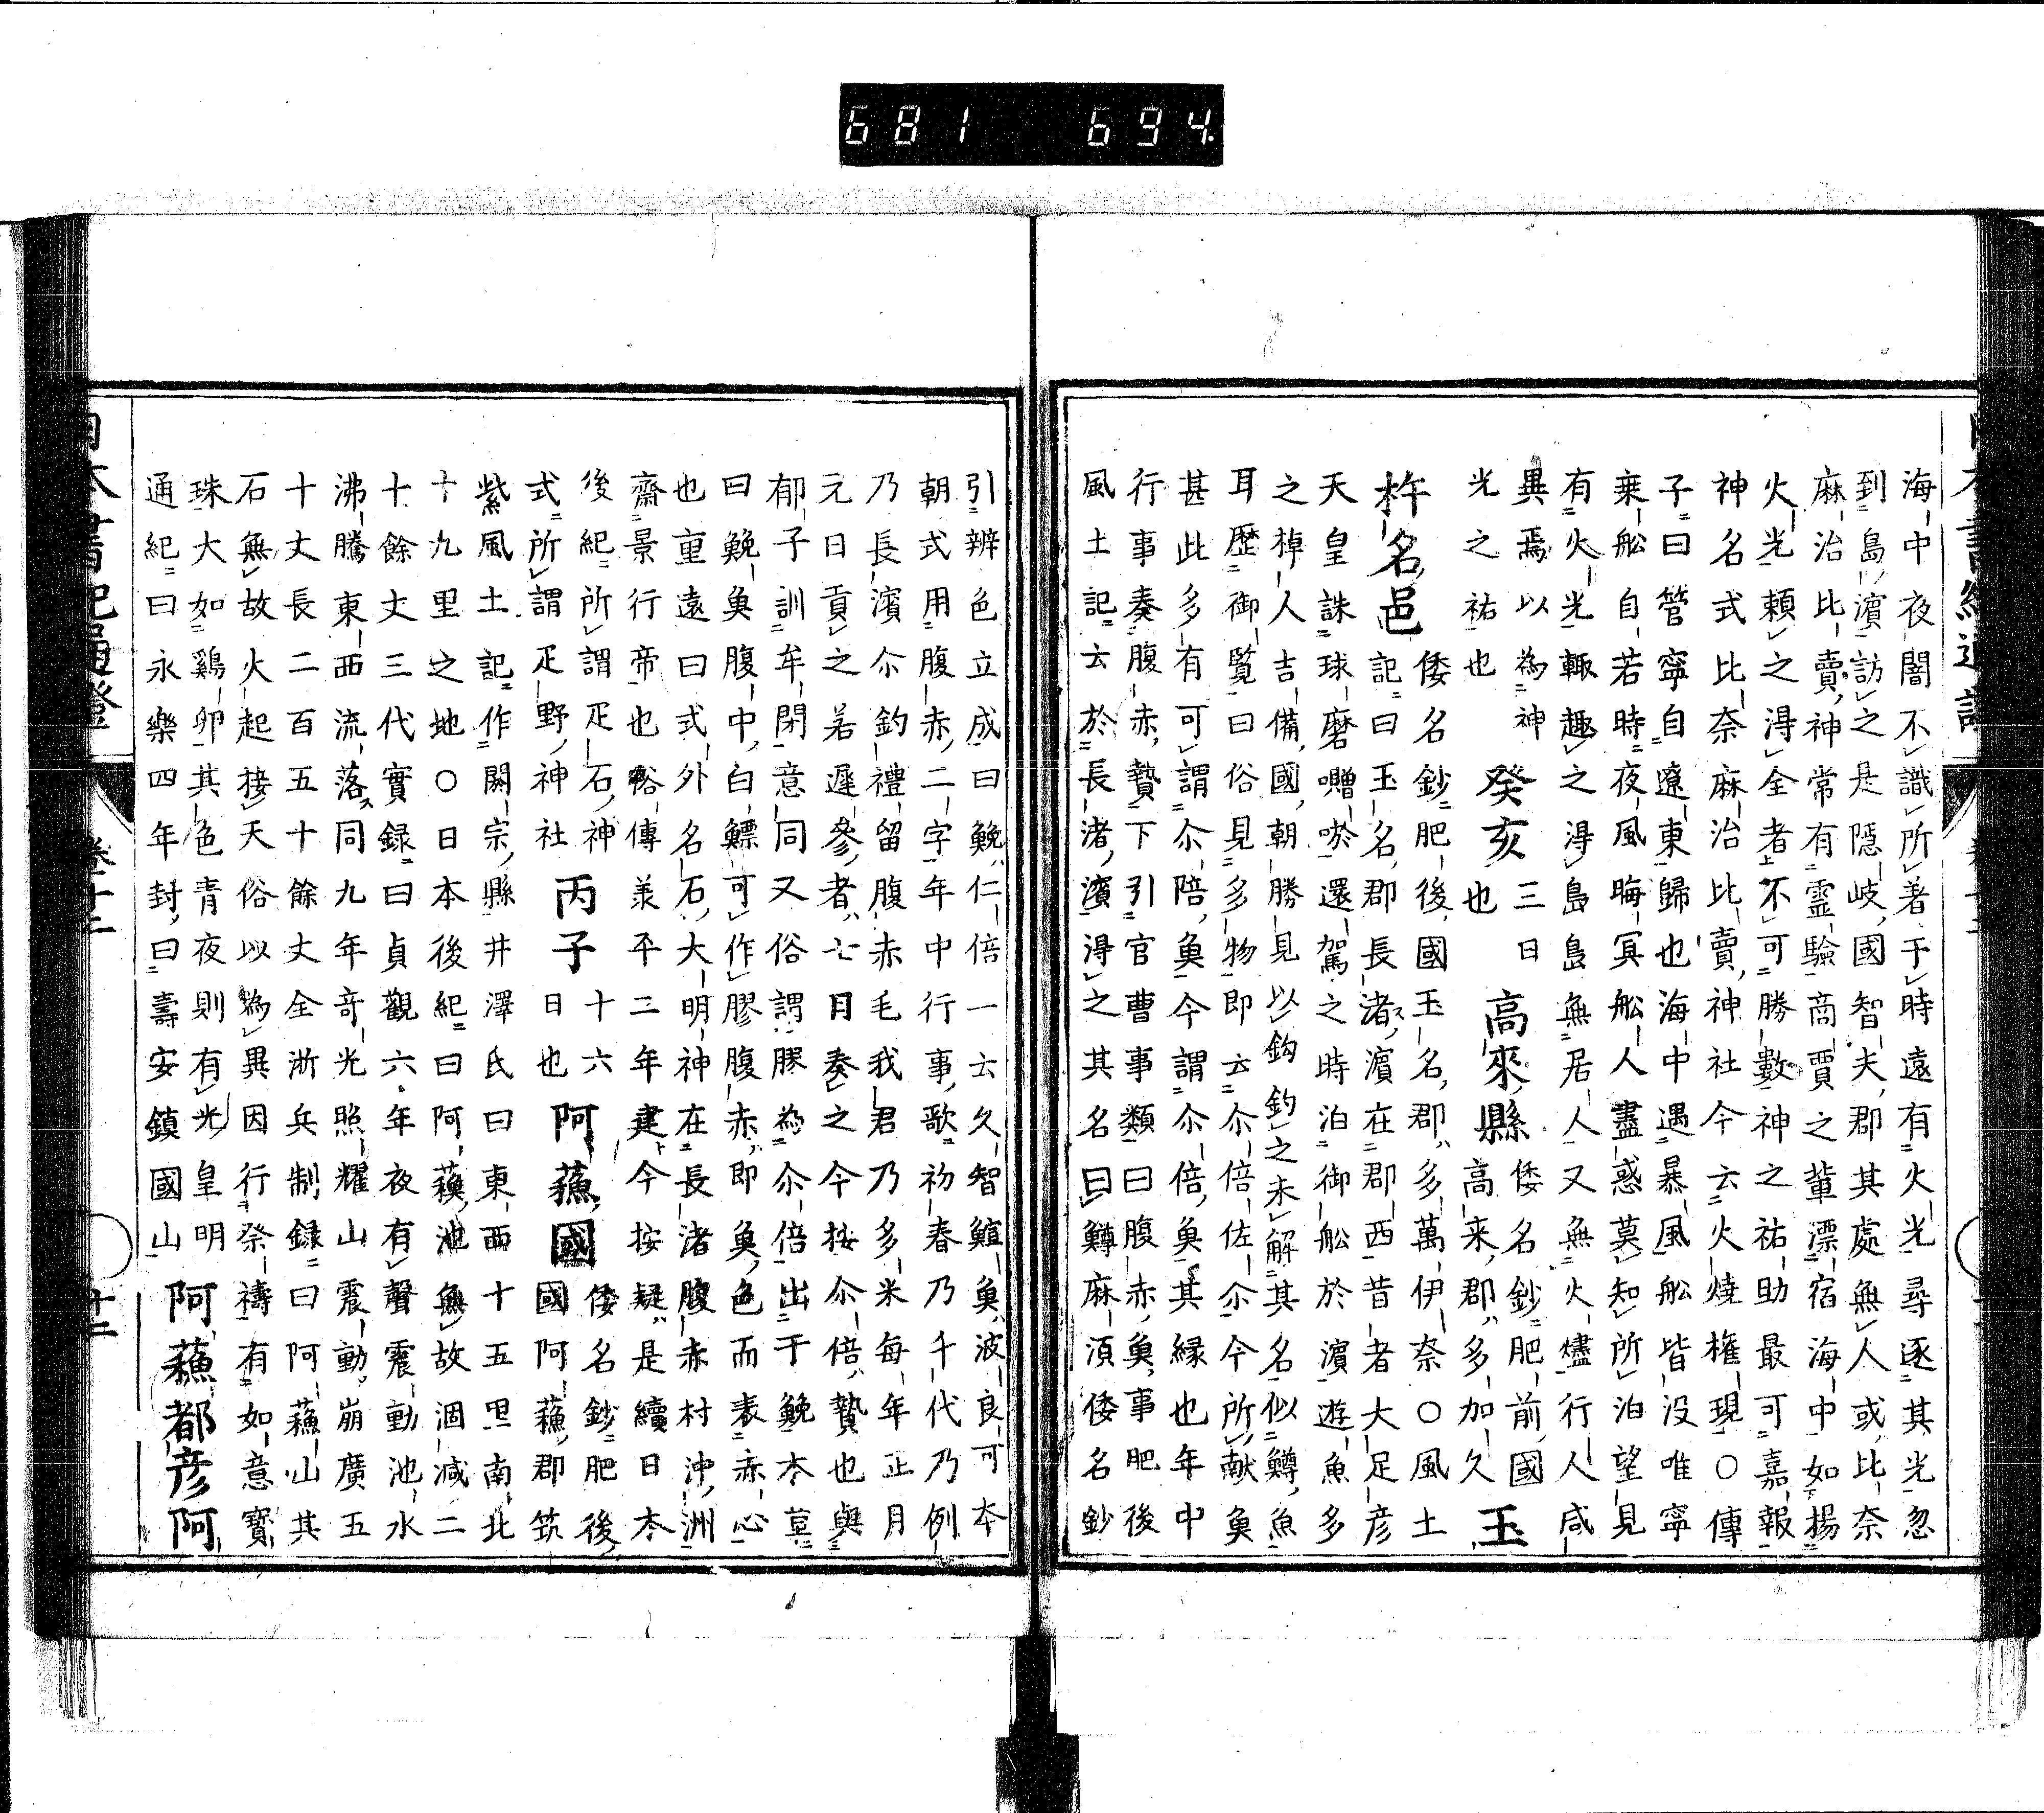 681 694.
海中夜闇不識所著于時遠有火光尋逐其光忽
到島濱訪之是隱岐國智夫郡其處無人或比奈
麻治比賣神常有靈驗商賈之輩漂宿海中如揚
火光頼之得全者不可勝數神之祐助最可嘉報
神名式比奈麻治比賣神社今云火燒権現○傳
子曰管寧自遼東歸也海中遇暴風舩皆没唯寧
乗舩自若時夜風晦冥舩人盡惑莫知所泊望見
有火光輙趣之得島島無居人又無火燼行人咸
異焉以為神
光之祐也
癸亥
三日
也
高來縣
倭名鈔肥前國
高来郡多加久
玉
杵名邑
倭名鈔肥後國玉名郡多萬伊奈○風土
記曰玉名郡長渚濱在郡西昔者大足彦
天皇誅球磨囎唹還駕之時泊御舩於濱遊魚多
之棹人吉備國朝勝見以鈎釣之未解其名似鱒魚
耳歴御覧曰俗見多物即云尒倍佐尒今所献魚
甚此多有可謂尒陪魚今謂尒倍魚其縁也年中
行事奏腹赤贄下引官曹事類曰腹赤魚事肥後
風土記云於長渚濱得之其名曰鱒麻須倭名鈔
引辨色立成曰鮸仁倍一云久智鰚魚波良可本
朝式用腹赤二字年中行事歌初春乃千代乃例
乃長濱尒釣禮留腹赤毛我君乃多米每年正月
元日貢之若遲參者七日奏之今按尒倍贄也與
郁子訓牟閉意同又俗謂膠為尒倍出于鮸本草
曰鮸魚腹中白鰾可作膠腹赤即魚色而表赤心
也重遠曰式外名石大明神在長渚腹赤村沖洲
齋景行帝也俗傳羕平二年建今按疑是續日本
後紀所謂疋石神
式所謂疋野神社
丙子
十六
日也
阿蘓國
倭名鈔肥後
國阿蘓郡筑
紫風土記作閼宗縣井澤氏曰東西十五里南北
十九里之地○日本後紀曰阿蘓池無故涸减二
十餘丈三代實録曰貞觀六年夜有聲震動池水
沸騰東西流落同九年竒光照耀山震動崩廣五
十丈長二百五十餘丈全淅兵制録曰阿蘓山其
石無故火起接天俗以為異因行祭禱有如意寶
珠大如鷄卵其色青夜則有光皇明
通紀曰永樂四年封曰壽安鎮國山
阿蘓都彦阿
日本書紀通證
卷十二
十二